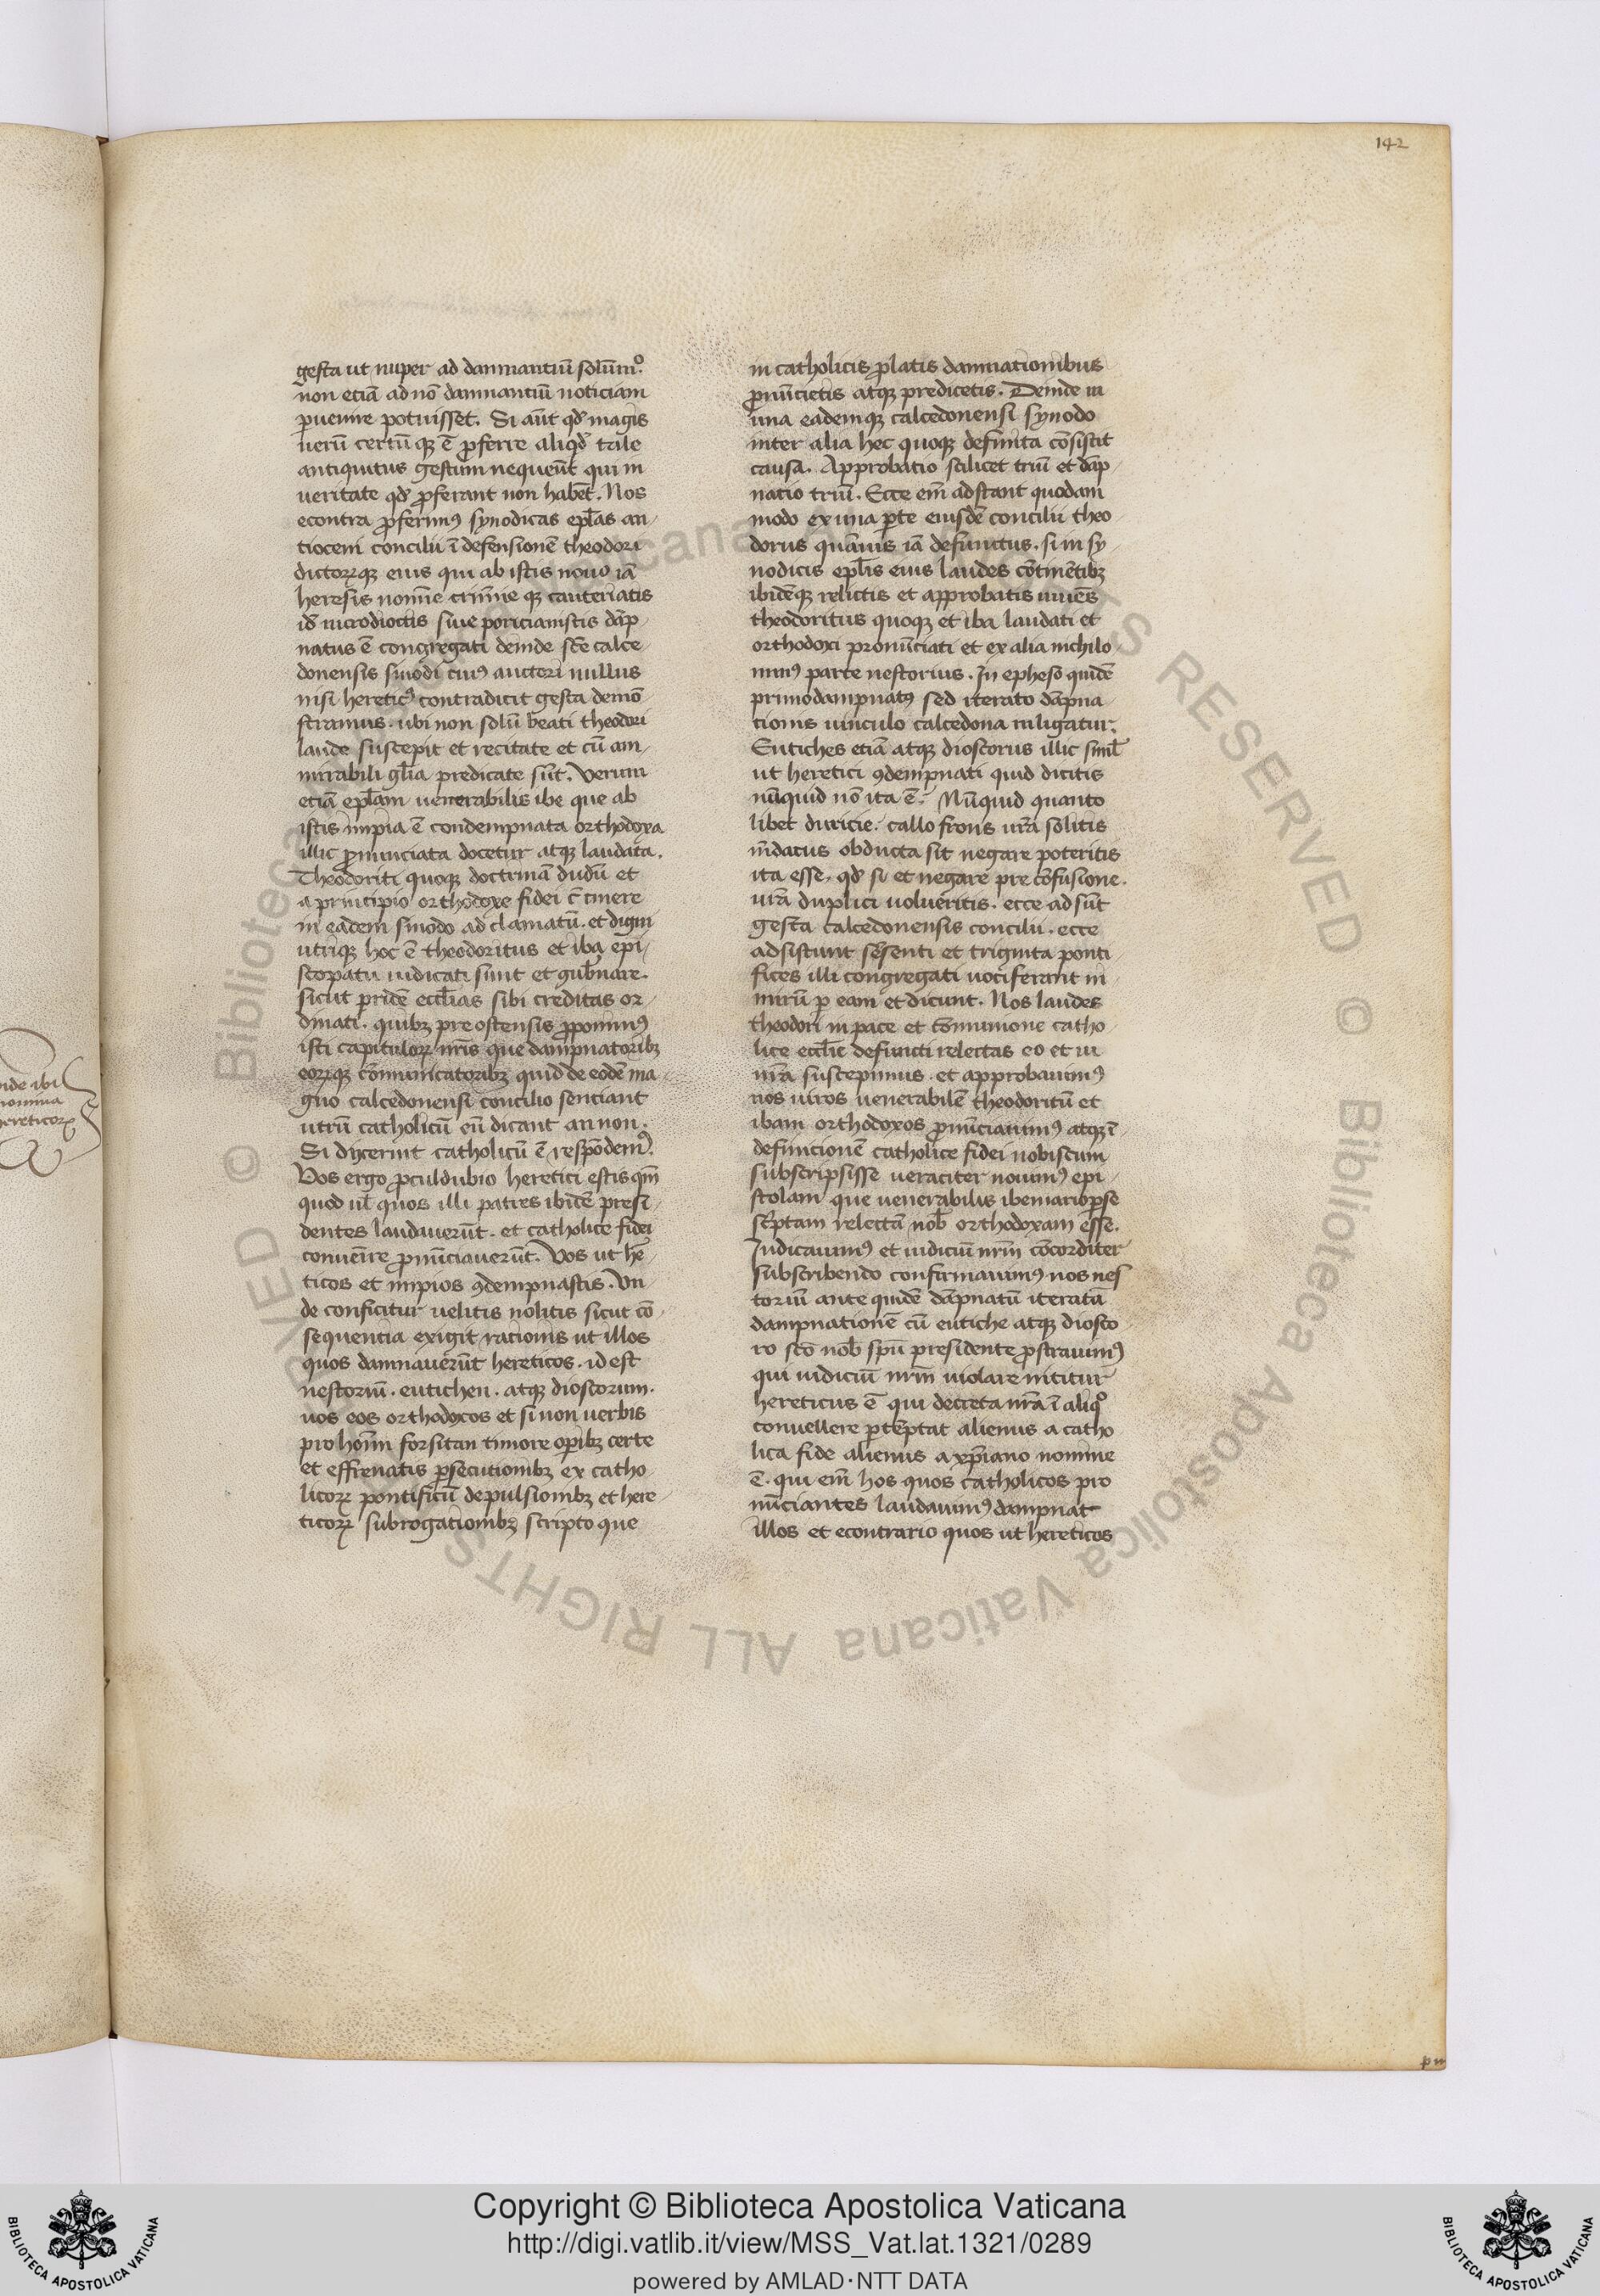 142
gesta ut nuper ad damnantiũ solũmͦ.
non etiã ad nõ damnantiũ noticiam
ꝑuenire potuisset. Si aũt qđ magis
uerũ certũ qꝫ ẽ ꝓferre aliqđ tale
antiquitus gestum nequeũt qui in
ueritate qđ ꝓferant non habẽt. Nos
econtra ꝓferimꝰ synodicas epl̃as an
tioceni concilii ĩ defensionẽ theodori
dictoꝝqꝫ eius qui ab istis nouo iã
heresis nomĩe crimĩe qꝫ cauteriatis
id̃ nicrodioctis siue poriciamistis dãp
natus ẽ congregati deinde sc̃e calce
donensis sinodi cuiꝰ auctori nullus
nisi hereticꝰ contradicit gesta demõ
stramus. ubi non solũ beati theodori
laude suscepit et recitate et cũ am
mirabili gl̃ia predicate sũt. Verum
etiã epl̃am uenerabilis ibe que ab
istis impia ẽ condempnata orthodoxa
illic ꝓnunciata docetur atqꝫ laudata.
Theodoriti quoqꝫ doctrinã dudũ et
a principio orthodoxe fidei c̃tinere
in eadem sinodo ad clamatũ. et digni
utriqꝫ hoc ẽ theodoritus et iba epi
scopatu iudicati sunt et gub̃nare.
sicut pridẽ eccl̃ias sibi creditas or
dinati. quibꝫ pre ostensis ꝓponimꝰ
isti capituloꝝ nr̃is que dampnatoribꝫ
eoꝝqꝫ cõmunicatoribꝫ quid de eodẽ ma
gno calcedonensi concilio senciant
utrũ catholicũ eũ dicant an non.
Si dixerint catholicũ ẽ respõdemꝰ.
Vos ergo ꝓculdubio heretici estis qm̃
quod ul̃ quos illi patres ibidẽ presi
dentes laudauerũt. et catholice fidei
conuenĩre ꝓnũciauerũt. Vos ut he
ticos et impios ꝯdempnastis. Vn
de conficitur uelitis nolitis sicut cõ
sequentia exigit racionis ut illos
quos damnauerũt hereticos. id est
nestoriũ. eutichen. atqꝫ dioscorum.
uos eos orthodoxos et si non uerbis
pro hoĩm forsitan timore oꝑibꝫ certe
et effrenatis ꝑsecutionibꝫ ex catho
licoꝝ pontificũ depulsionibꝫ et here
ticoꝝ subrogationibꝫ scripto que
in catholicis ꝓlatis damnationibus
ꝓnũcietis atqꝫ predicetis. Deinde in
una eademqꝫ calcedonensi synodo
inter alia hec quoqꝫ definita cõsistit
causa. Approbatio scilicet triũ et dãp
natio triũ. Ecce em̃ adstant quodam
modo ex una ꝑte eiusdẽ concilii theo
dorus quãuis iã defunctus. si in sy
nodicis epl̃is eius laudes cõtinẽtibꝫ
ibidẽqꝫ relictis et approbatis uiuẽs
theodoritus quoqꝫ et iba laudati et
orthodoxi pronũciati et ex alia nichilo
minꝰ parte nestorius. In epheso quidẽ
primo dampnatꝰ sed iterato dãpna
tionis uinculo calcedona inligatur.
Eutiches etiã atqꝫ dioscorus illic simĩl
ut heretici ꝯdempnati quid dicitis
nũquid nõ ita ẽ. Nũquid quanto
libet duricie. callo frons ur̃a solitis
m̃dacus obducta sit negare poteritis
ita esse. qđ si et negare pre cõfusione.
ur̃a duplici uolueritis. ecce ad sũt
gesta calcedonensis concilii. ecce
adsistunt sexcenti et triginta ponti
fices illi congregati uociferant ni
mirũ ꝓ eam et dicunt. Nos laudes
theodori in pace et cõmunione catho
lice eccl̃ie defuncti relectas eo et ni
nr̃a suscepimus. et approbauimꝰ
nos uiros uenerabilẽ theodoritũ et
ibam orthodoxos ꝓnũciauimꝰ atqꝫ ĩ
definicionẽ catholice fidei nobiscum
subscripsisse ueraciter nouimꝰ epi
stolam que uenerabilis ibe mari oꝑse
sc̃ptam relectã nob̃ orthodoxam esse.
Iudicauimꝰ et iudiciũ nr̃m cõcorditer
subscribendo confirmauimꝰ nos nes
toriũ ante quidẽ dãpnatũ iteratã
dampnationẽ cũ eutiche atqꝫ diosco
ro sc̃o nob̃ spũ presidente ꝓstrauimꝰ
qui iudiciũ nr̃m uiolare nititur
hereticus ẽ qui decreta nr̃a ĩ aliqͦ
conuellere ꝑtẽptat alienus a catho
lica fide alienus a xp̃iano nomine
ẽ. qui em̃ hos quos catholicos pro
nũciantes laudauimꝰ dampnat
illos et econtrario quos ut hereticos
Copyright © Biblioteca Apostolica Vaticana
http://digi.vatlib.it/view/MSS_Vat.lat.1321/0289
powered by AMLAD·NTT DATA
BIBLIOTECA APOSTOLICA VATICANA
BIBLIOTECA APOSTOLICA VATICANA
© Biblioteca Apostolica Vaticana ALL RIGHTS RESERVED